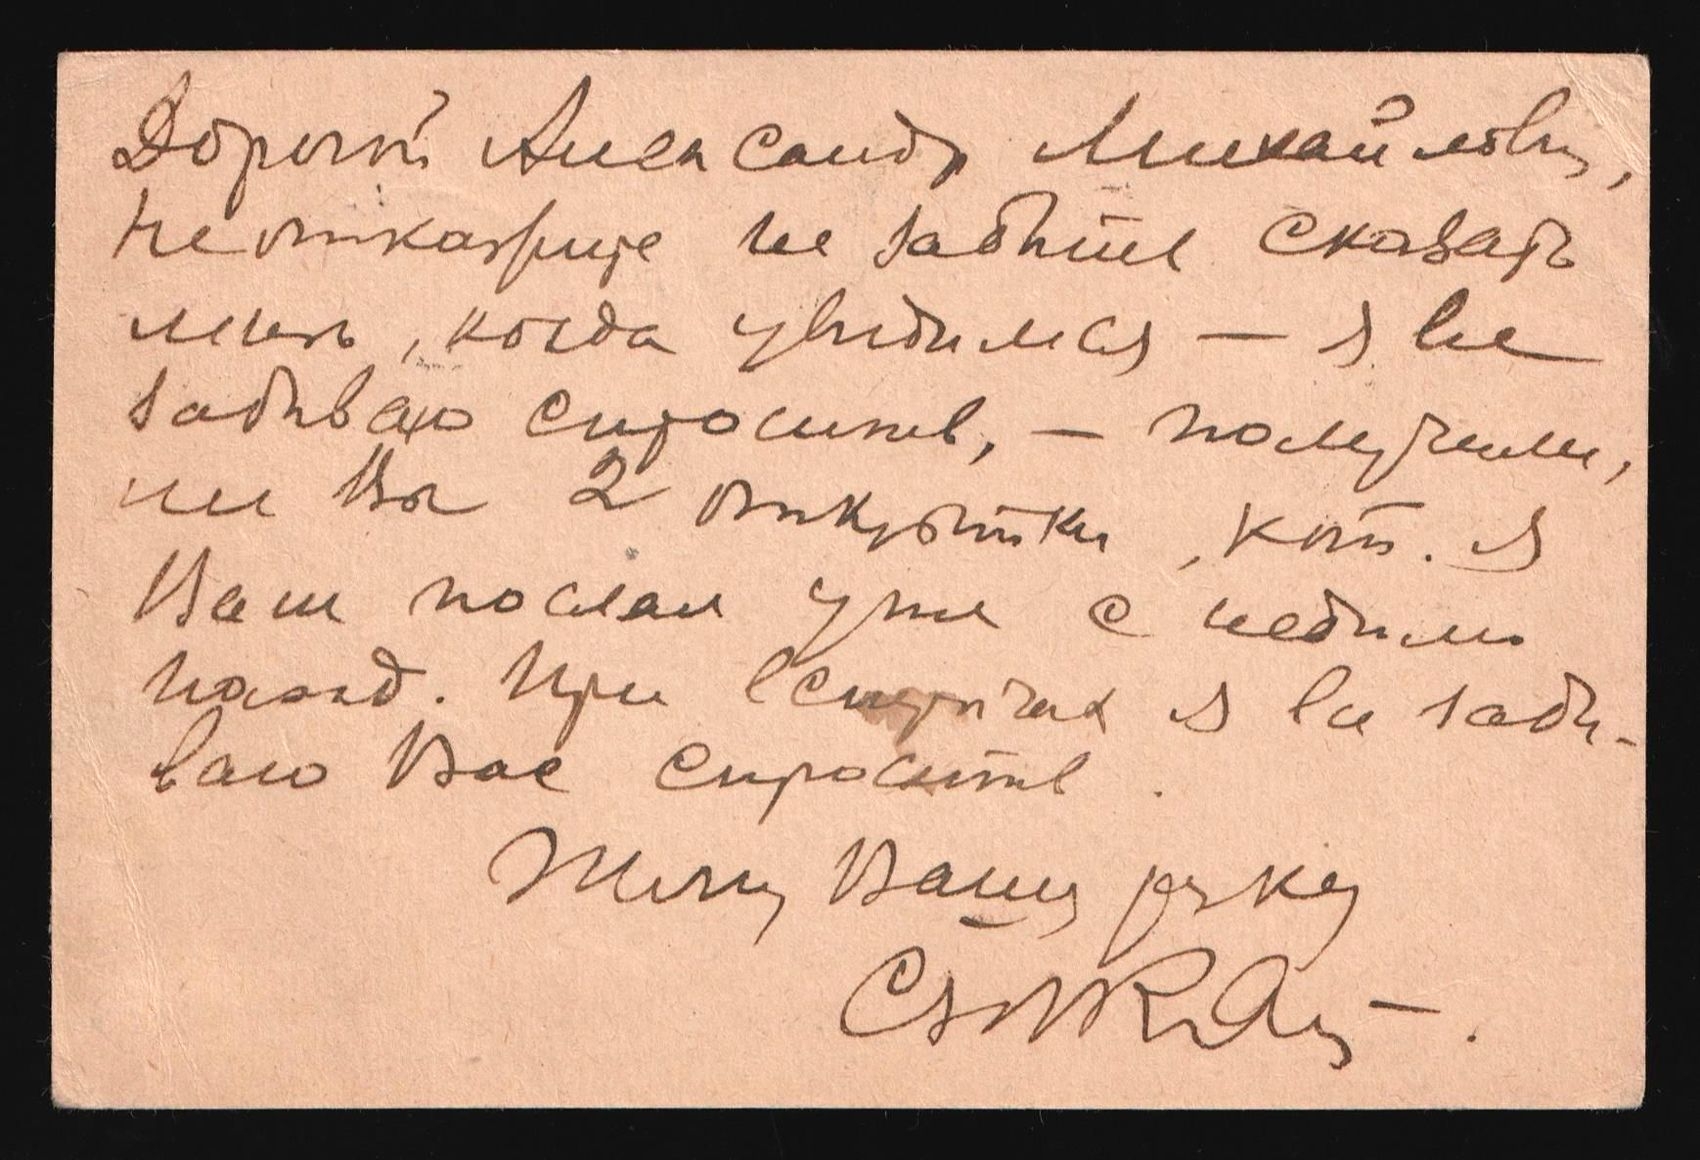 Дорогой Александр Михайлович,
не откажите не забыть сказать
мне, когда увидимся — я все
забываю спросить, — получили,
ли Вы 2 открытки, кот. я
Вам послал уже с неделю
назад. При встречах я все забы-
ваю Вас спросить.
Жму Вашу руку